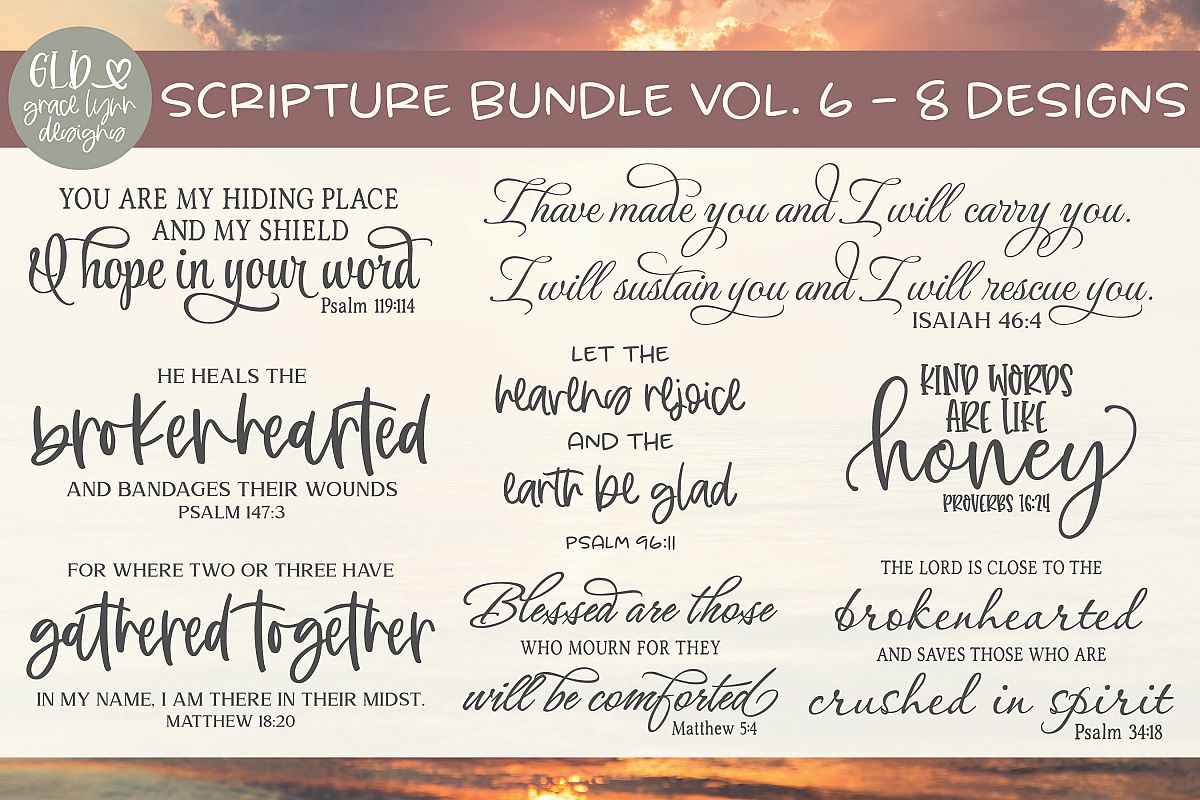 GLD
grace lynn
designs
SCRIPTURE BUNDLE VOL. 6 - 8 DESIGNS
YOU ARE MY HIDING PLACE
AND MY SHIELD
I hope in your word
Psalm 119:114
I have made you and I will carry you.
I will sustain you and I will rescue you.
ISAIAH 46:4
HE HEALS THE
brokenhearted
AND BANDAGES THEIR WOUNDS
PSALM 147:3
LET THE
heavens rejoice
AND THE
earth be glad
PSALM 96:11
KIND WORDS
ARE LIKE
honey
PROVERBS 16:24
FOR WHERE TWO OR THREE HAVE
gathered together
IN MY NAME, I AM THERE IN THEIR MIDST.
MATTHEW 18:20
Blessed are those
WHO MOURN FOR THEY
will be comforted
Matthew 5:4
THE LORD IS CLOSE TO THE
brokenhearted
AND SAVES THOSE WHO ARE
crushed in spirit
Psalm 34:18